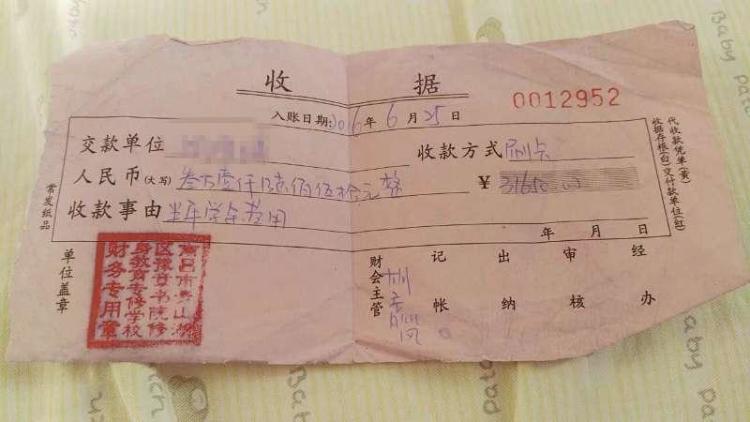 收据
0012952
入账日期:2016年6月25日
交款单位
收款方式 刷卡
人民币(大写) 叁万壹仟陆佰伍拾元整
¥ 31650.00
收款事由 半年学杂费用
年 月 日
常发纸品
收据存根(白)交付款单位(红)
代收款凭单(黄)
单位盖章
南昌市青山湖
区豫章书院修
身教育专修学校
财务专用章
财会主管
记帐
出纳
审核
经办
Baby
Baby
Baby